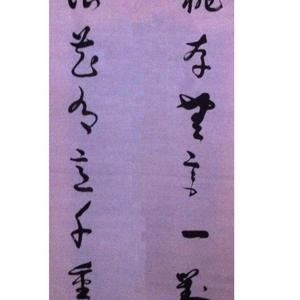 桃李無言一
浪花有意千重